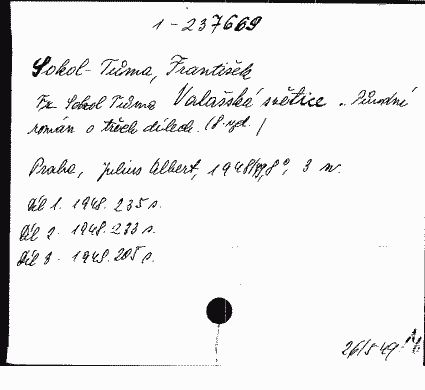 1-237669
Sokol-Tůma, František
Fr. Sokol Tůma Valašská světice. Původní
román o třech dílech. (8. vyd.)
Praha, Julius Albert, 1948/49, 8°, 3 sv.
Díl 1. 1948. 235 s.
Díl 2. 1948. 233 s.
Díl 3. 1948. 205 s.
26/5 49